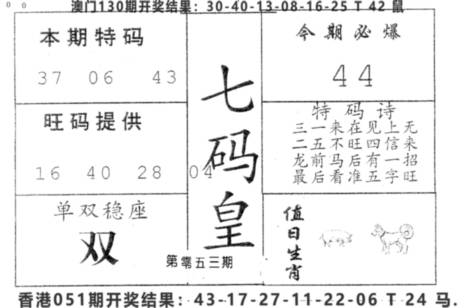 澳门130期开奖结果：30-40-13-08-16-25 T 42 鼠
本期特码
37 06 43
旺码提供
16 40 28 04
单双稳座
双
七码皇
第零五三期
今期必爆
44
特码诗
三一来在见上无
二五不旺四信来
龙前马后有一招
最后看准五字旺
值日生肖
香港051期开奖结果：43-17-27-11-22-06 T 24 马.